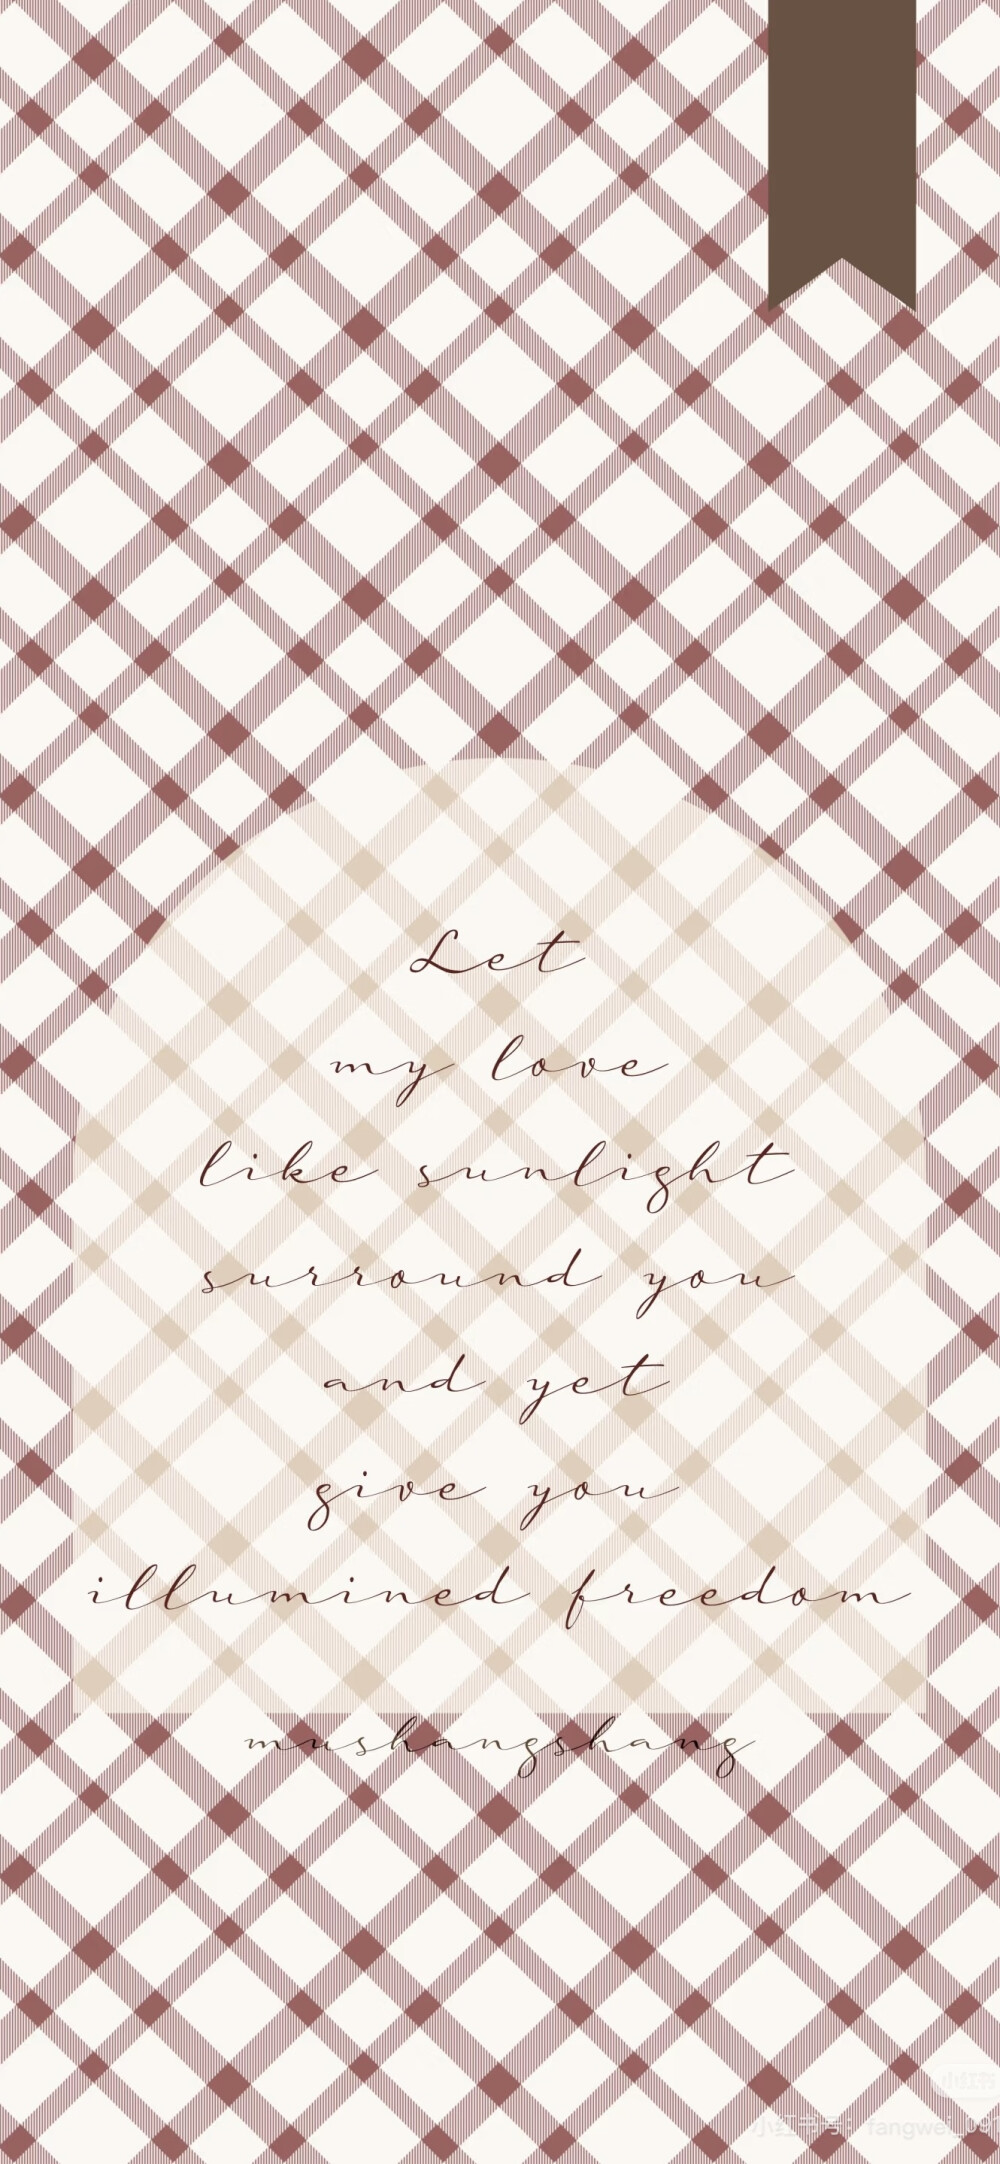 Let
my love
like sunlight
surround you
and yet
give you
illumined freedom
mushangshang
小红书
小红书号：fangwei_09